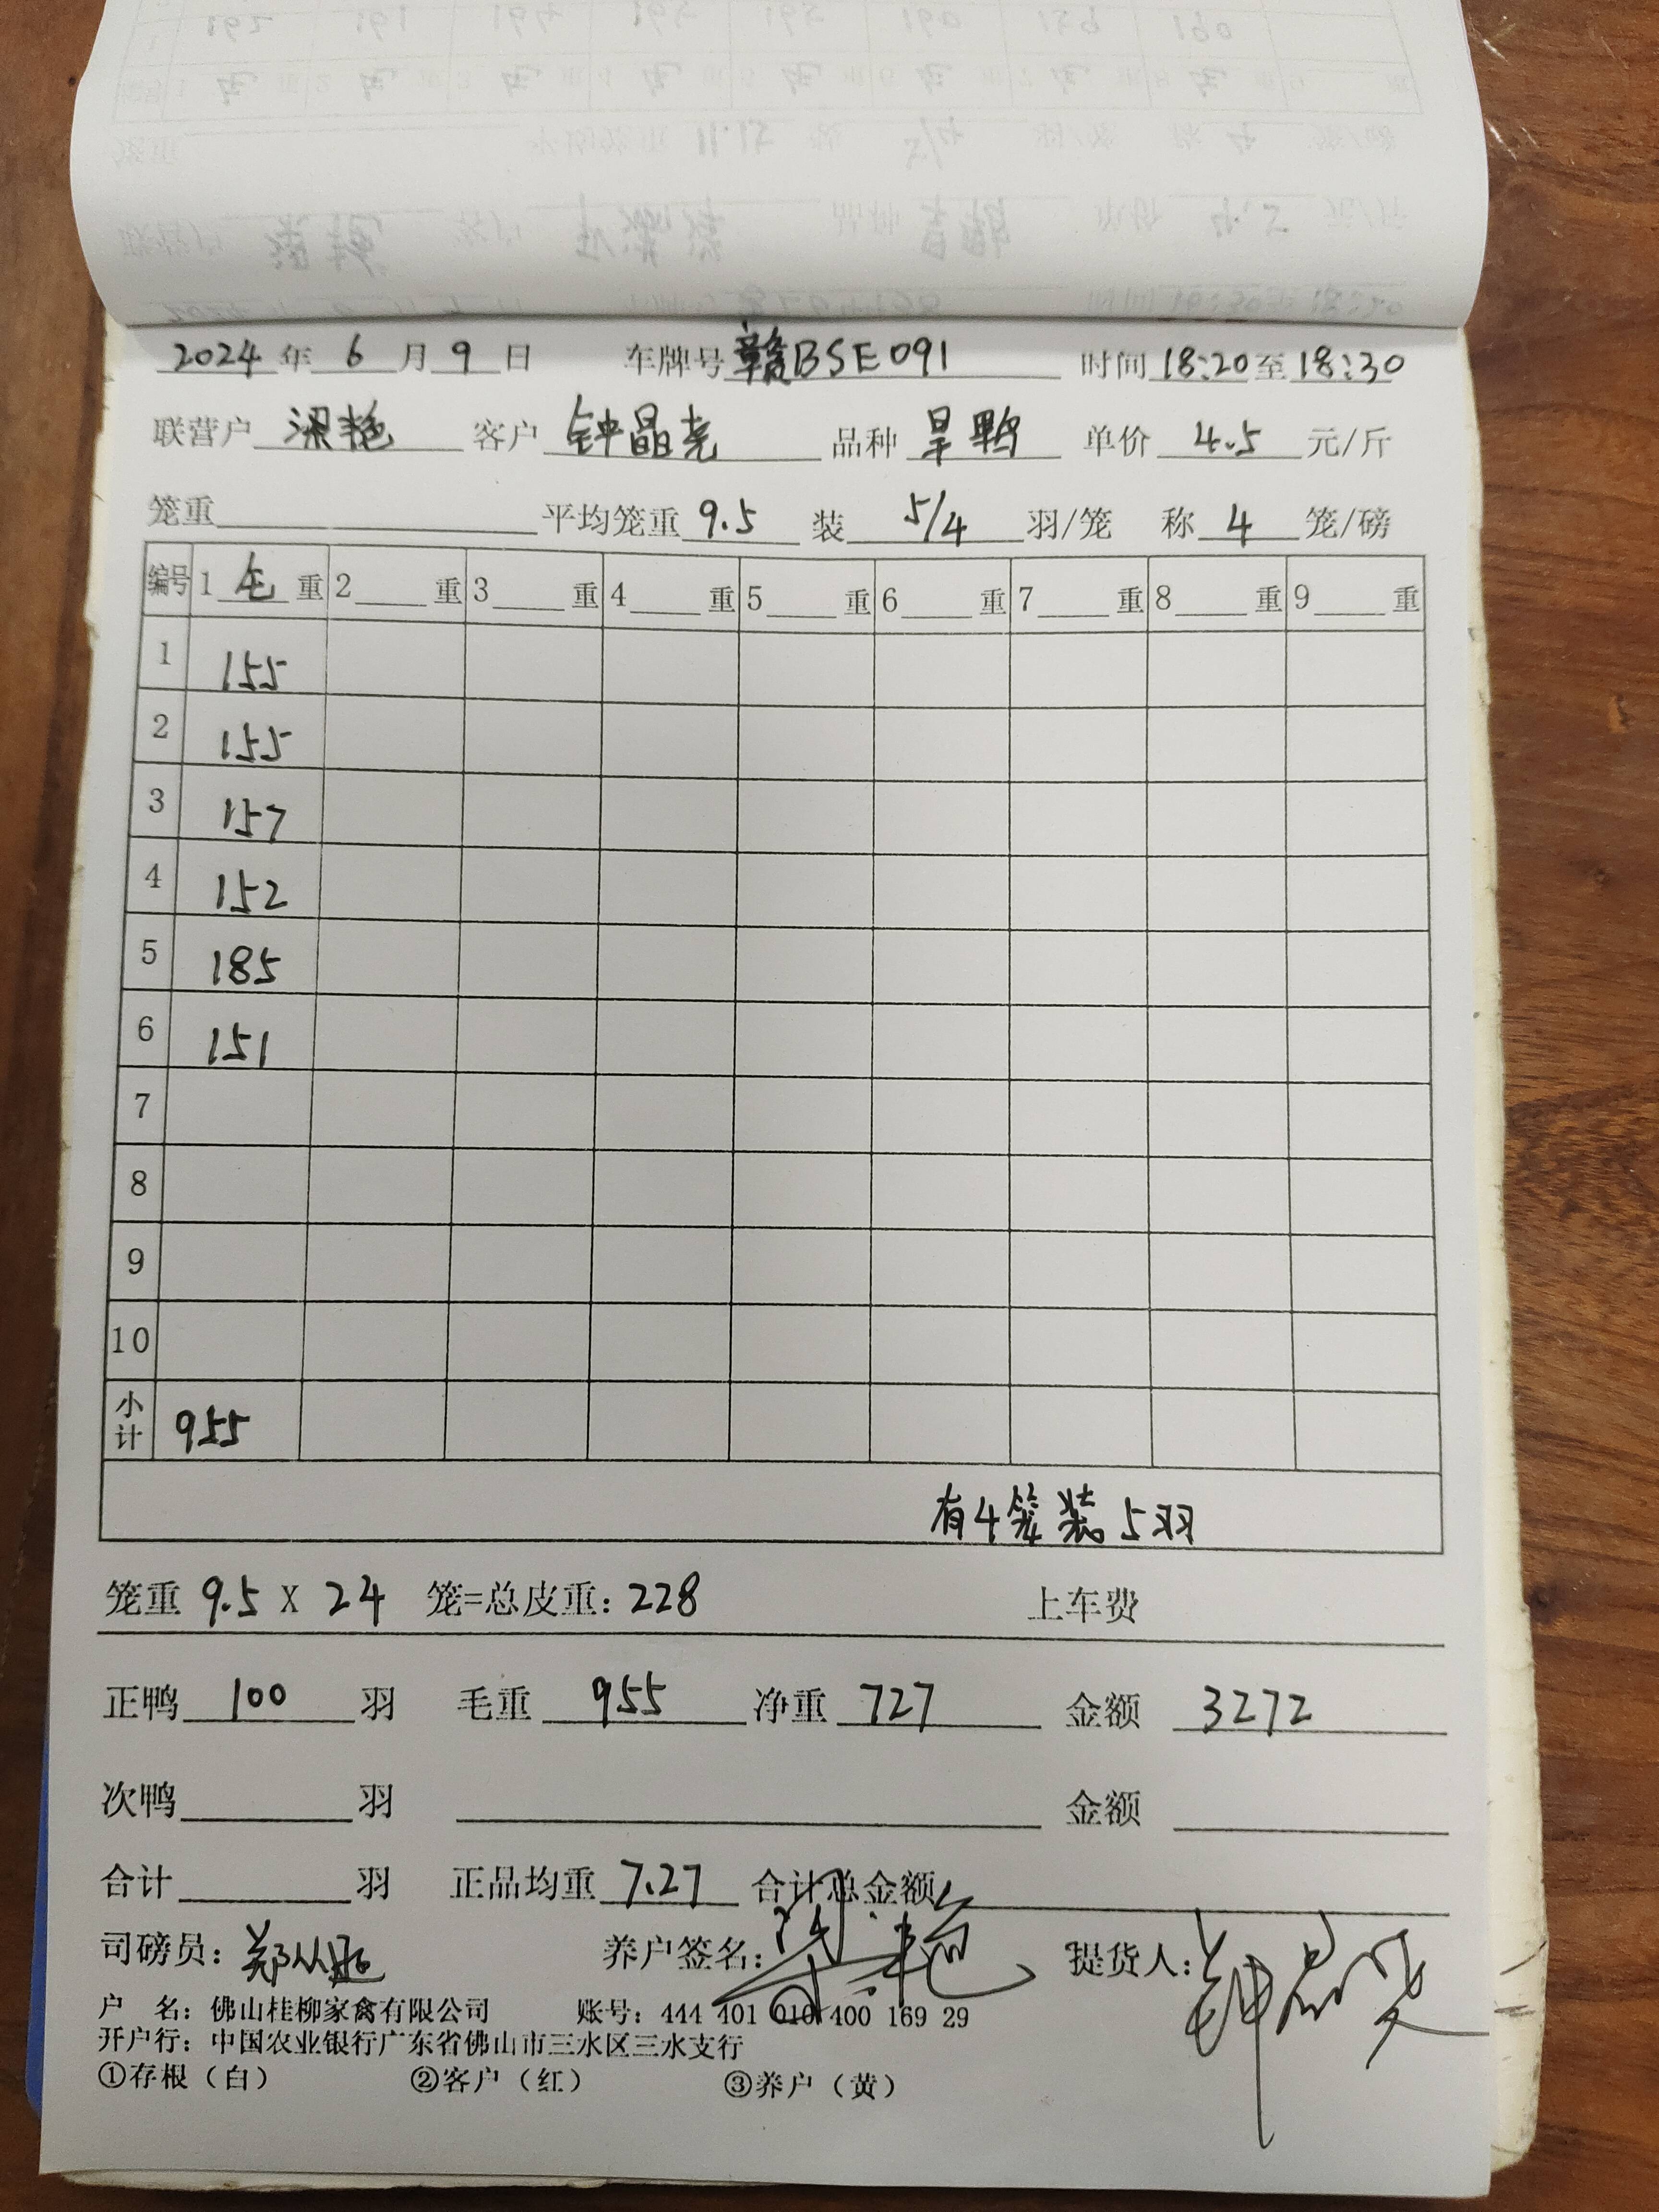 2024 年 6 月 9 日 车牌号 赣BSE091 时间 18:20 至 18:30
联营户 梁艳 客户 钟晶尧 品种 旱鸭 单价 4.5 元/斤
笼重 平均笼重 9.5 装 5/4 羽/笼 称 4 笼/磅
编号 1 毛 重 2 重 3 重 4 重 5 重 6 重 7 重 8 重 9 重
1 155
2 155
3 157
4 152
5 185
6 151
7
8
9
10
小计 955
有4笼装5羽
笼重 9.5 X 24 笼=总皮重: 228 上车费
正鸭 100 羽 毛重 955 净重 727 金额 3272
次鸭 羽 金额
合计 羽 正品均重 7.27 合计总金额
司磅员: 养户签名: 梁艳 提货人:
户 名: 佛山桂柳家禽有限公司 账号: 444 401 010 400 169 29
开户行: 中国农业银行广东省佛山市三水区三水支行
①存根（白） ②客户（红） ③养户（黄）